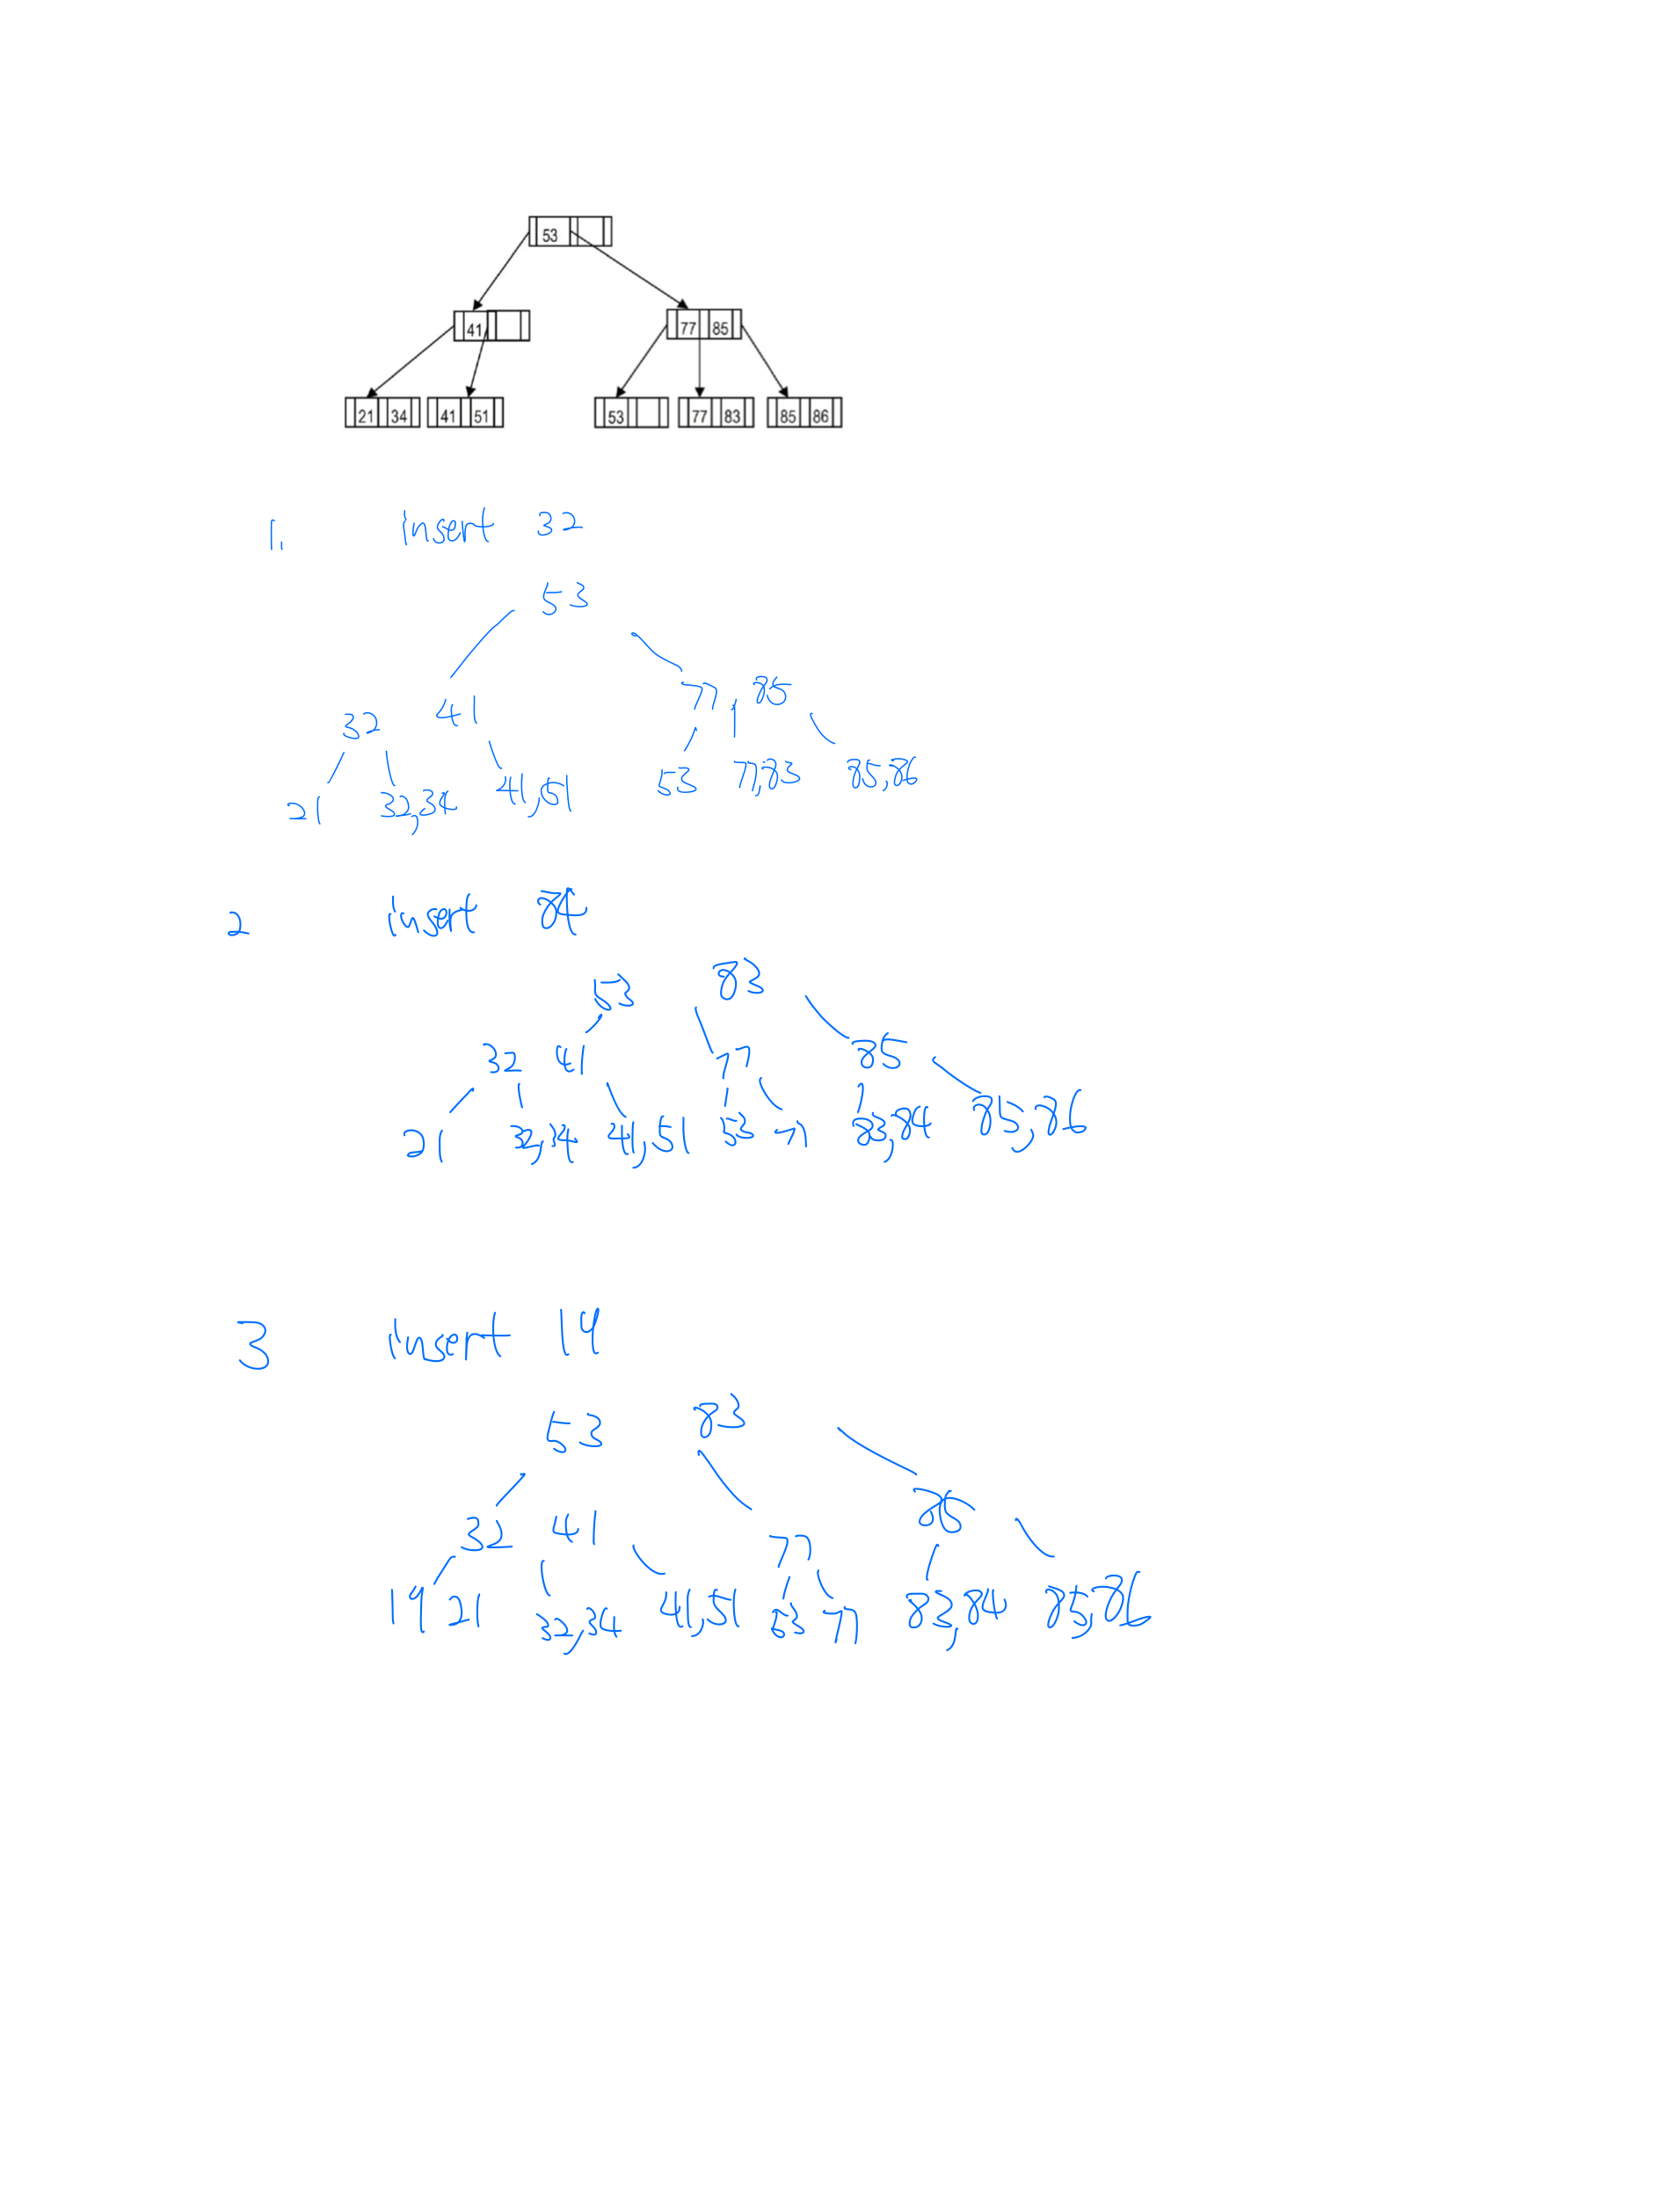 53
41 77 85
21 34 41 51 53 77 83 85 86
1. insert 32
53
32 41 77, 85
21 32,34 41,51 53 77,83 85,86
2 insert 84
53 83
32 41 77 85
21 32,34 41,51 53 77 83,84 85,86
3 insert 19
53 83
32 41 77 85
19 21 32,34 41,51 53 77 83,84 85,86